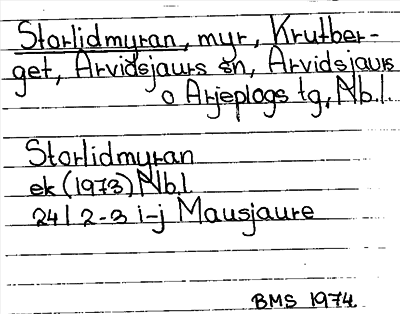 Storlidmyran, myr, Krutber-
get, Arvidsjaurs sn, Arvidsjaurs
o Arjeplogs tg, Nb.l.
Storlidmyran
ek (1973) Nb.l
24I 2-3 i-j Mausjaure
BMS 1974